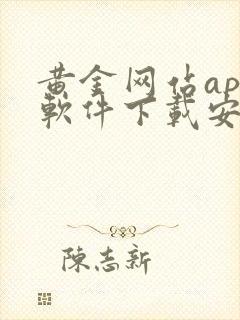 黄金网站ap
軟件下載安
陳志新